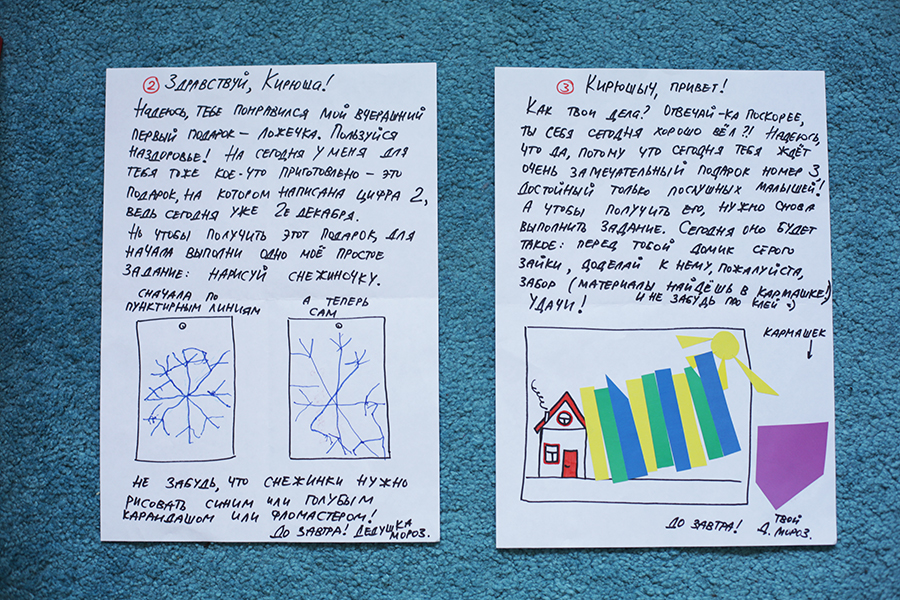 2 Здравствуй, Кирюша!
Надеюсь, тебе понравился мой вчерашний
первый подарок – ложечка. Пользуйся
наздоровье! На сегодня у меня для
тебя тоже кое-что приготовлено – это
подарок, на котором написана цифра 2,
ведь сегодня уже 2е декабря.
Но чтобы получить этот подарок, для
начала выполни одно моё простое
задание: нарисуй снежиночку.
сначала по
пунктирным линиям
а теперь
сам
Не забудь, что снежинки нужно
рисовать синим или голубым
карандашом или фломастером!
До завтра! Дедушка
Мороз.
3 Кирюшыч, привет!
Как твои дела? Отвечай-ка поскорее,
ты себя сегодня хорошо вёл?! Надеюсь,
что да, потому что сегодня тебя ждёт
очень замечательный подарок номер 3,
достойный только послушных малышей!
А чтобы получить его, нужно снова
выполнить задание. Сегодня оно будет
такое: перед тобой домик серого
зайки, доделай к нему, пожалуйста,
забор (материалы найдёшь в кармашке!)
Удачи! и не забудь про клей :)
кармашек
До завтра! Твой
Д. Мороз.